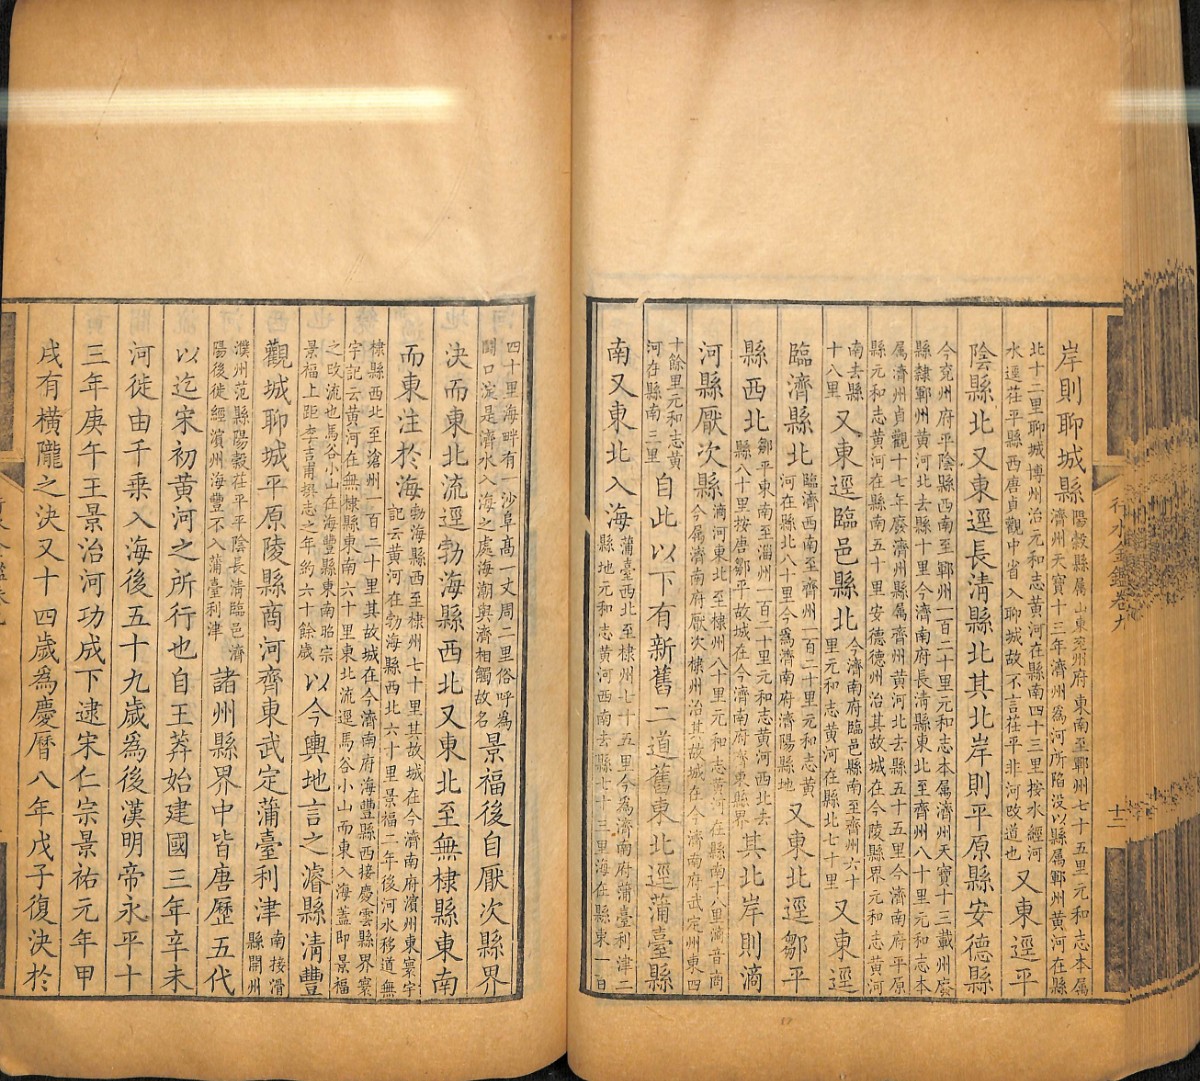 岸則聊城縣陽穀縣屬山東兖州府東南至鄆州七十五里元和志本屬
濟州天寶十三年濟州為河所陷没以縣屬鄆州黄河在縣
北十二里聊城博州治元和志黄河在縣南四十三里按水經河
水逕茌平縣西唐貞觀中省入聊城故不言茌平非河改道也又東逕平
陰縣北又東逕長淸縣北其北岸則平原縣安德縣
今兖州府平陰縣西南至鄆州一百二十里元和志本屬濟州天寶十三載州廢
縣隸鄆州黄河北去縣十里今濟南府長淸縣東北至齊州八十里元和志本
屬濟州貞觀十七年廢濟州縣屬齊州黄河北去縣五十五里今濟南府平原
縣元和志黄河在縣南五十里安德德州治其故城在今陵縣界元和志黄河
南去縣
十八里又東逕臨邑縣北今濟南府臨邑縣南至齊州六十
里元和志黄河在縣北七十里又東逕
臨濟縣北臨濟西南至齊州一百二十里元和志黄
河在縣北八十里今為濟南府濟陽縣地又東北逕鄒平
縣西北鄒平東南至淄州一百二十里元和志黄河西北去
縣八十里按唐鄒平故城在今濟南府齊東縣界其北岸則滴
河縣厭次縣滴河東北至棣州八十里元和志黄河在縣南十八里滴音商
今屬濟南府厭次棣州治其故城在今濟南府武定州東四
十餘里元和志黄
河在縣南三里自此以下有新舊二道舊東北逕蒲臺縣
南又東北入海蒲臺西北至棣州七十五里今為濟南府蒲臺利津二
縣地元和志黄河西南去縣七十三里海在縣東一百
行水金鑑卷九
十二
四十里海畔有一沙阜髙一丈周二里俗呼為
鬭口淀是濟水入海之處海潮與濟相觸故名景福後自厭次縣界
決而東北流逕勃海縣西北又東北至無棣縣東南
而東注於海勃海縣西至棣州七十里其故城在今濟南府濵州東寰宇
記云黄河在勃海縣西北六十里景福二年後河水移道無
棣縣西北至滄州一百二十里其故城在今濟南府海豐縣西接慶雲縣界寰
宇記云黄河在無棣縣東南六十里東北流逕馬谷小山而東入海盖即景福
之改流也馬谷小山在海豐縣東南昭宗
景福上距李吉甫輿志之年約六十餘歲以今輿地言之濬縣淸豐
觀城聊城平原陵縣商河齊東武定蒲臺利津南接滑
縣開州
濮州范縣陽穀茌平平陰長淸臨邑濟
陽後徙經濵州海豐不入蒲臺利津諸州縣界中皆唐歷五代
以迄宋初黄河之所行也自王莽始建國三年辛未
河徙由千乗入海後五十九歲為後漢明帝永平十
三年庚午王景治河功成下逮宋仁宗景祐元年甲
戌有横隴之決又十四歲為慶曆八年戊子復決於